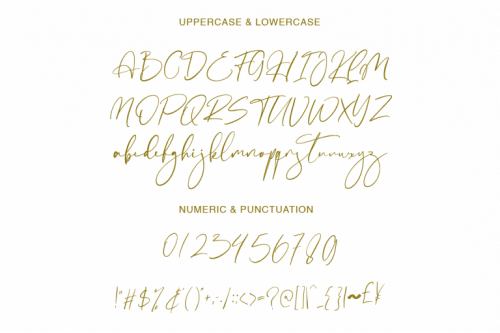 UPPERCASE & LOWERCASE
ABCDEFGHIJKLM
NOPQRSTUVWXYZ
abcdefghijklmnopqrstuvwxyz
NUMERIC & PUNCTUATION
0123456789
!"#$%&'()*+,-./:;<>=?@[]\^_{}|~£¥